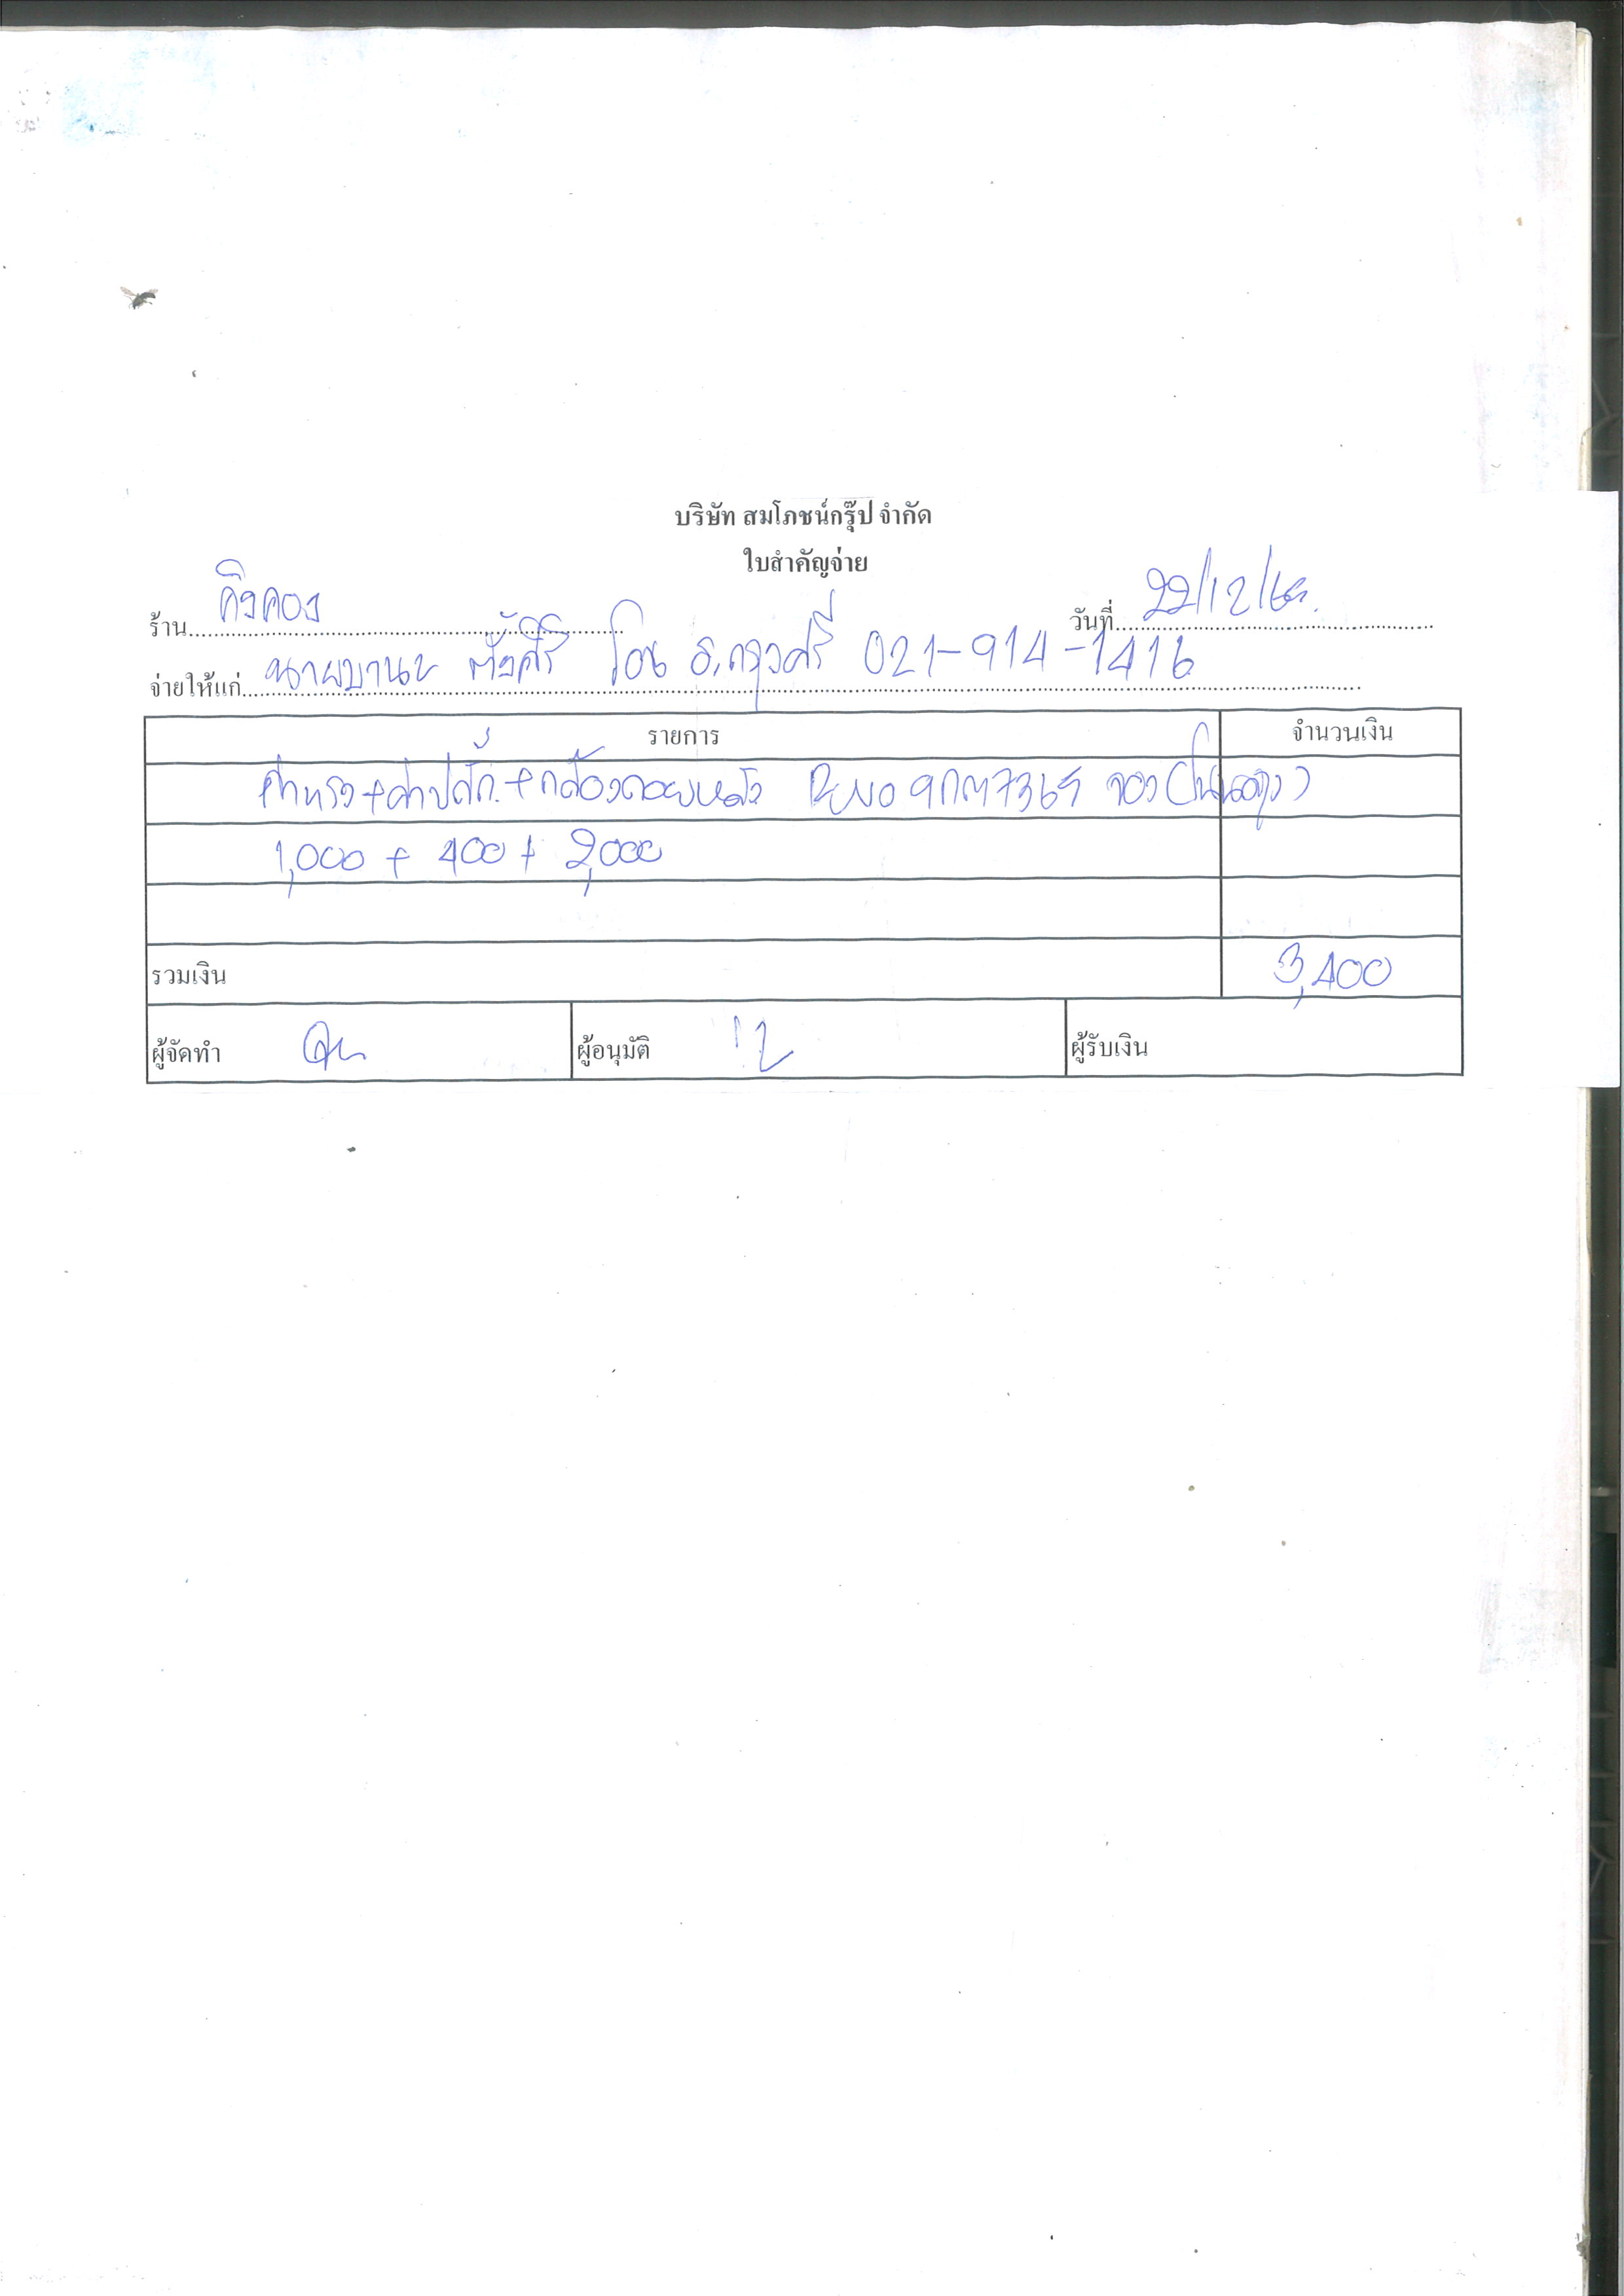 บริษัท สมโภชน์กรุ๊ป จำกัด
ใบสำคัญจ่าย
ร้าน คิงคอง วันที่ 22/12/6
จ่ายให้แก่ นายมานะ ตั้งศิริ โอน ธ.กรุงศรี 021-914-1416
รายการ จำนวนเงิน
+กล้องถอยหลัง 9กฅ7365 จอง
1,000 + 400 + 2,000
รวมเงิน 3,400
ผู้จัดทำ ผู้อนุมัติ ผู้รับเงิน